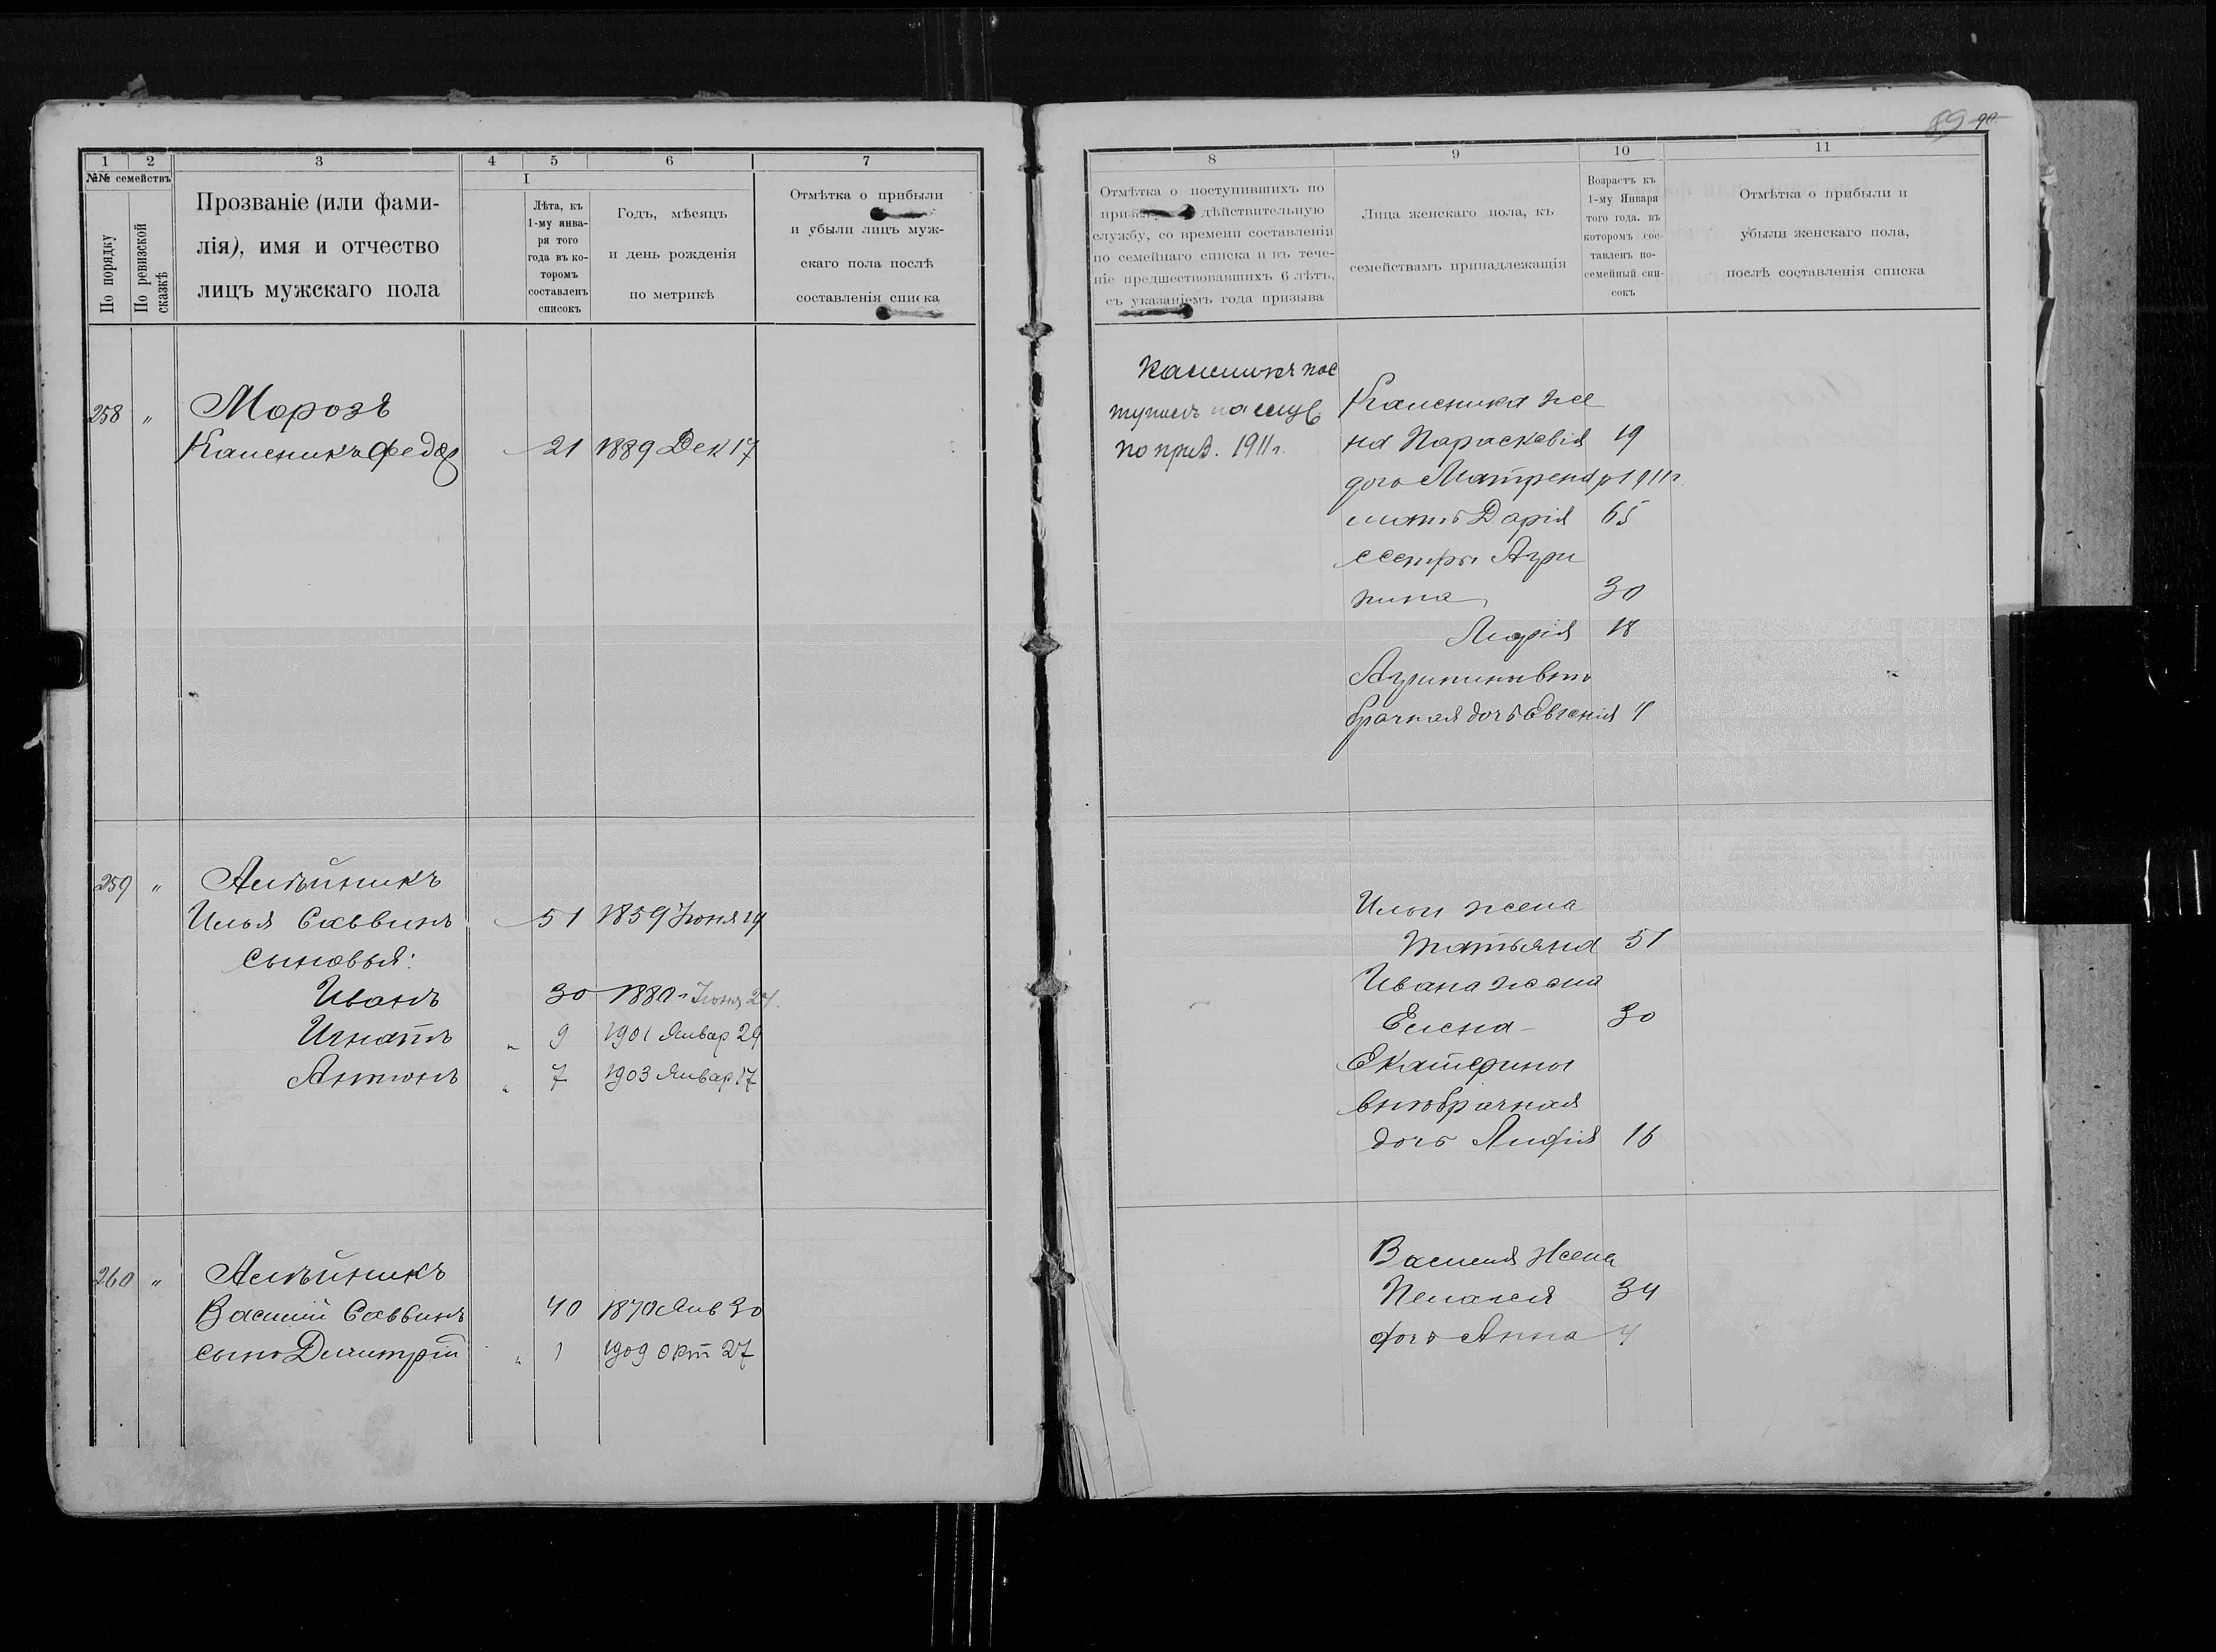 89 90
1 2 3 4 5 6 7
№№ семействъ
По порядку
По ревизской сказкѣ
Прозваніе (или фами-
лія), имя и отчество
лицъ мужскаго пола
I
Лѣта, къ
1-му янва-
ря того
года въ ко-
торомъ
составленъ
списокъ
Годъ, мѣсяцъ
и день рожденія
по метрикѣ
Отмѣтка о прибыли
и убыли лицъ муж-
скаго пола послѣ
составленія списка
258 " Морозъ
Калистратъ Федор 21 1889 Дек 17
259 " Алѣйникъ
Илья Саввинъ 51 1859 Іюня 19
сыновья:
Иванъ 30 1880 Іюня 24
Игнатъ " 9 1901 Январ 29
Антонъ " 7 1903 Январ 17
260 " Алѣйникъ
Василій Саввинъ 40 1870 Янв 30
сынъ Димитрій " 1 1909 Окт 27
8 9 10 11
Отмѣтка о поступившихъ по
дѣйствительную
службу, со времени составленія
по семейнаго списка и въ тече-
ніе предшествовавшихъ 6 лѣтъ,
съ указаніемъ года призыва
Лица женскаго пола, къ
семействамъ принадлежащія
Возрастъ къ
1-му Января
того года, въ
которомъ сос-
тавленъ по-
семейный спи-
сокъ
Отмѣтка о прибыли и
убыли женскаго пола,
послѣ составленія списка
пос
тупилъ на служ
по приз. 1911 г.
же
на Параскавія 19
дочь Матрена р 1911 г.
мать Дарія 65
сестры Агри
пина 30
Марія 18
Агрипины внѣ
брачная дочь Евгенія 4
Ильи жена
Татьяна 51
Ивана жена
Елена 30
Екатерины
внѣбрачная
дочь Марія 16
Василія жена
Пелагея 34
дочь Анна 4